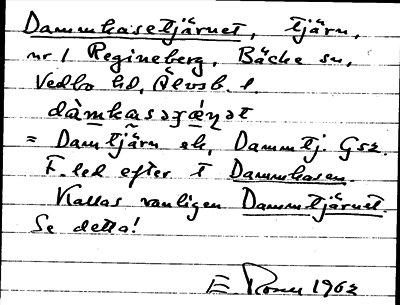 Dammkasetjärnet, tjärn,
nr 1 Regineberg, Bäcke sn,
Vedbo hd, Älvsb. l.
dàmkasəʒǽṇət
= Damtjärn ek, Dammtj. Gsz.
F. led efter t Dammkasen.
Kallas vanligen Dammtjärnet.
Se detta!
E 1962